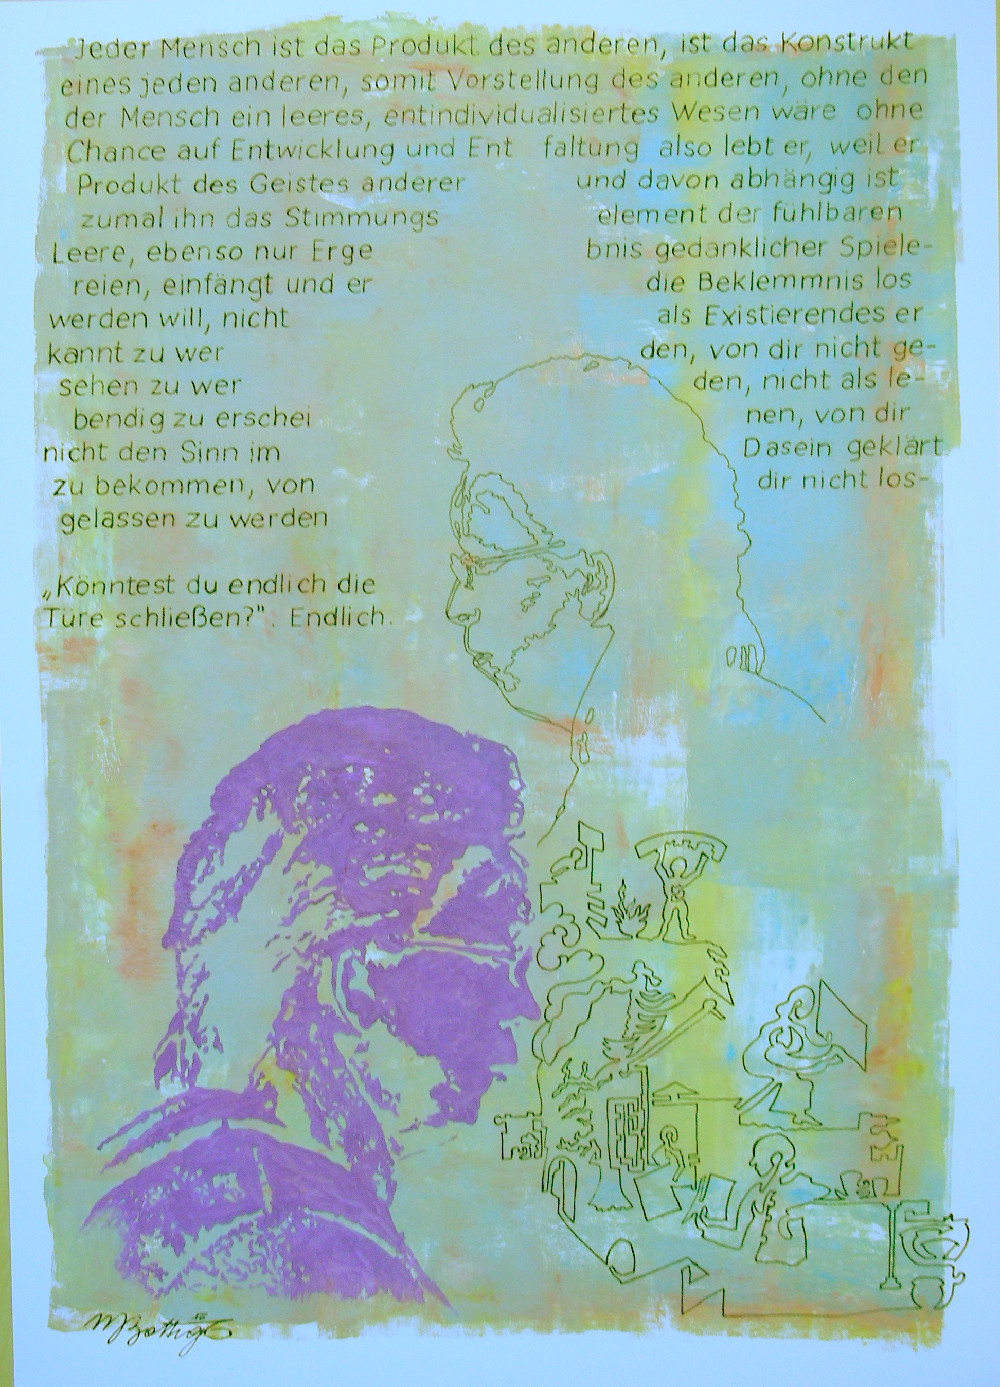 Jeder Mensch ist das Produkt des anderen, ist das Konstrukt
eines jeden anderen, somit Vorstellung des anderen, ohne den
der Mensch ein leeres, entindividualisiertes Wesen wäre ohne
Chance auf Entwicklung und Ent faltung also lebt er, weil er
Produkt des Geistes anderer und davon abhängig ist
zumal ihn das Stimmungs element der fühlbaren
Leere, ebenso nur Erge bnis gedanklicher Spiele-
reien, einfängt und er die Beklemmnis los
werden will, nicht als Existierendes er
kannt zu wer den, von dir nicht ge-
sehen zu wer den, nicht als le-
bendig zu erschei nen, von dir
nicht den Sinn im Dasein geklärt
zu bekommen, von dir nicht los-
gelassen zu werden
„Könntest du endlich die
Türe schließen?". Endlich.